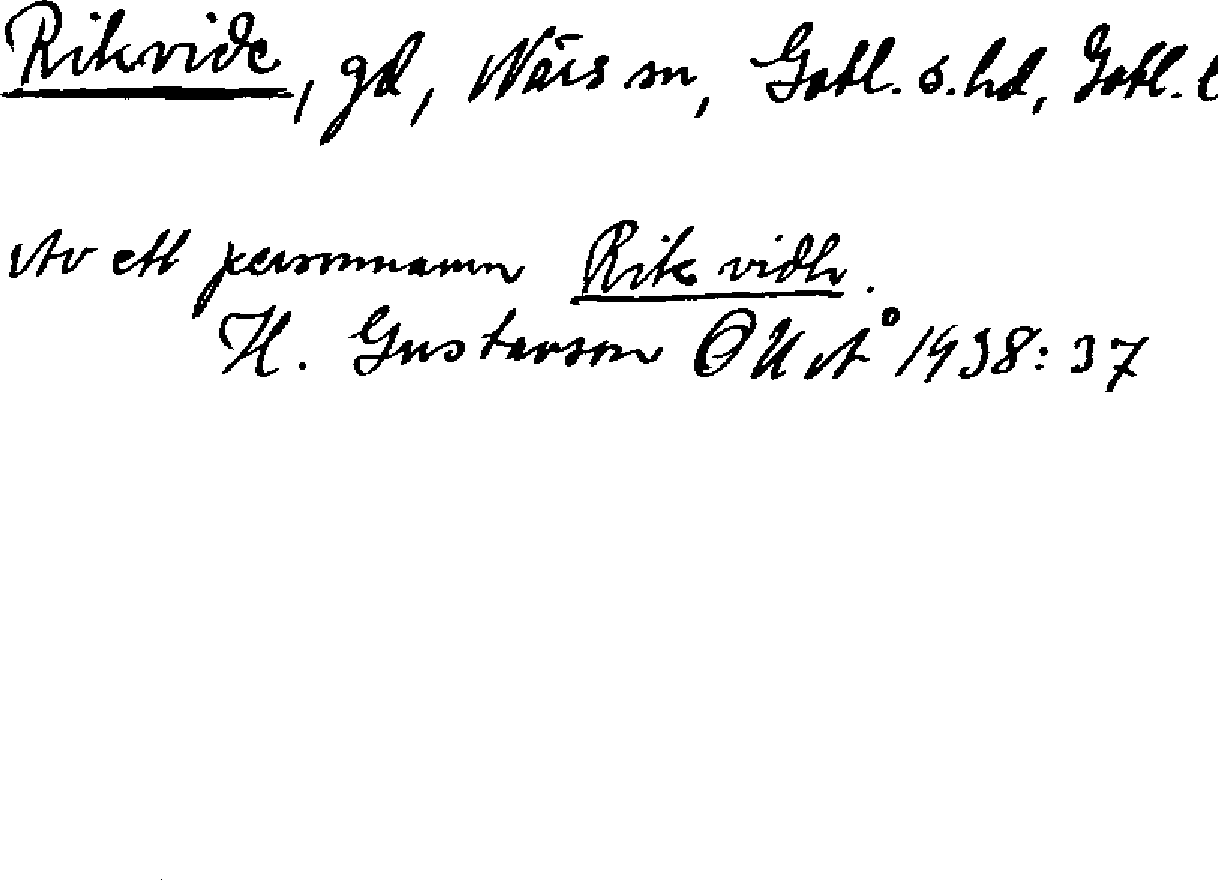 Rikvide, gd, När sn, Gotl. s. hd, Gotl. l
Av ett personnamn Rikvidh.
H. Gustavson OUÅ 1938: 37